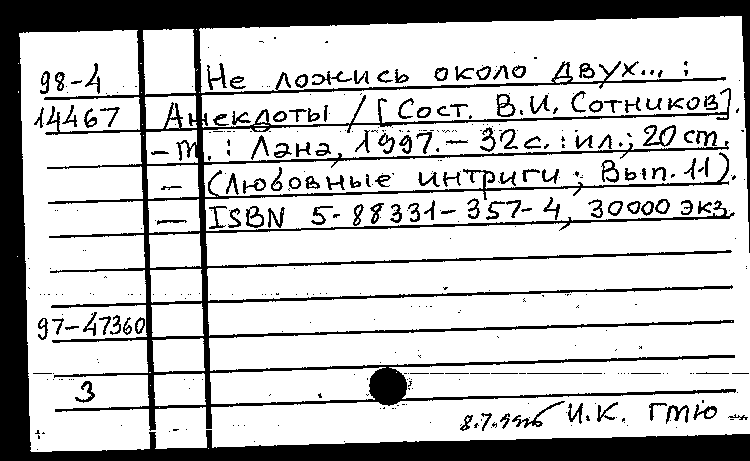 98-4 Не ложись около двух... :
14467 Анекдоты / [Сост. В.И. Сотников].
– М. : Лана, 1997. – 32 с. : ил.; 20 см.
– (Любовные интриги ; Вып. 11).
– ISBN 5-88331-357-4, 30000 экз.
97-47360
3
И.К.